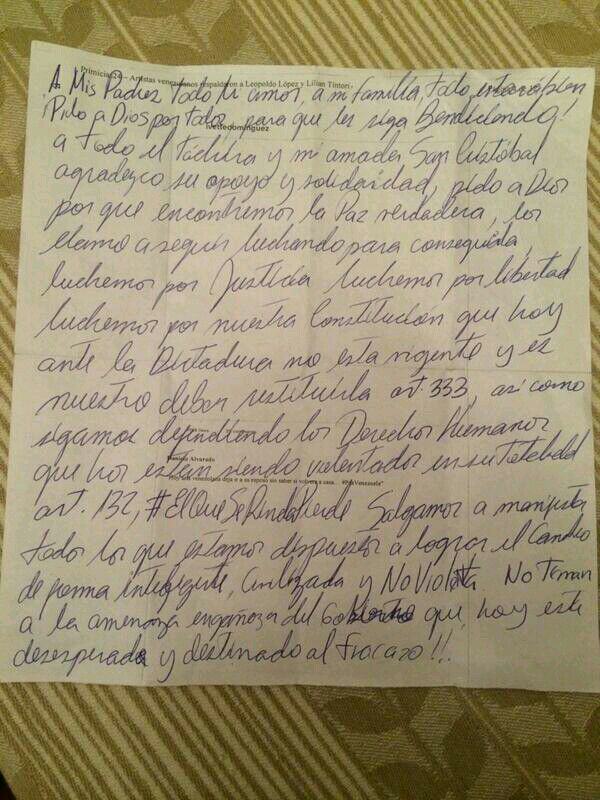 Primicias24 – Artistas venezolanos respaldaron a Leopoldo López y Lilian Tintori
A Mis Padres todo mi amor, a mi familia, todo estará bien
¡Pido a Dios por todos para que les siga Bendiciendo!
ivettedominguez
a todo el Táchira y mi amada San Cristóbal
agradezco su apoyo y solidaridad, pido a Dios
por que encontremos la Paz verdadera, los
llamo a seguir luchando para conseguirla,
luchemos por Justicia luchemos por libertad
luchemos por nuestra Constitución que hoy
ante la Dictadura no esta vigente y es
nuestro deber restituirla art 333, asi como
sigamos defendiendo los Derechos Humanos
que hoy estan siendo violentados en su totalidad
Daniela Alvarado
art. 132, #ElQueSeRindePierde Salgamos a manifestar
todos los que estamos dispuestos a lograr el Cambio
de forma inteligente, Civilizada y No Violenta. No teman
a la amenaza engañoza del Gobierno que hoy esta
desesperado y destinado al fracazo!!.